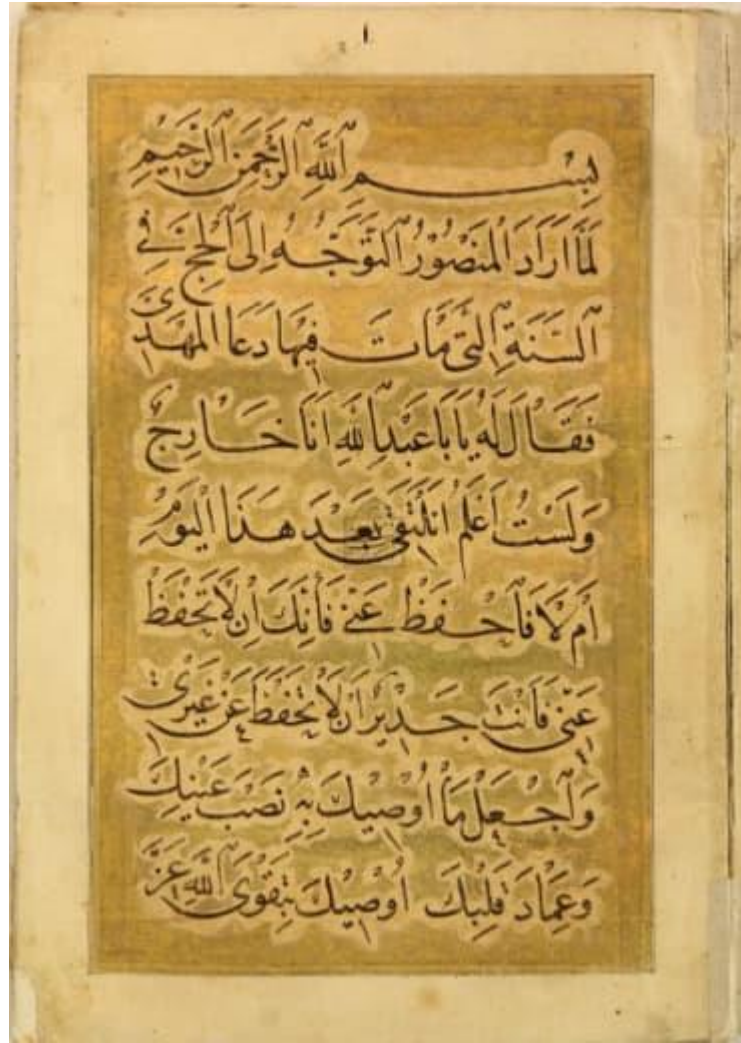 ١
بِسْمِ اللَّهِ الرَّحْمَنِ الرَّحِيمِ
لَمَّا اَرَادَ الْمَنْصُوْرُ التَّوَجُّهَ اِلَى الْحَجِّ فِي
السَّنَةِ الَّتِي مَاتَ فِيْهَا دَعَا الْمَهْدِيَّ
فَقَالَ لَهُ يَا بَا عَبْدِ اللهِ اَنَا خَارِجٌ
وَلَسْتُ اَعْلَمُ اَنَلْتَقِي بَعْدَ هَذَا الْيَوْمِ
اَمْ لَا فَاحْفَظْ عَنِّي فَاَنَّكَ اِنْ لَا تَحْفَظْ
عَنِّي فَاَنْتَ جَدِيْرٌ اَنْ لَا تَحْفَظَ عَنْ غَيْرِي
وَاجْعَلْ مَا اُوْصِيْكَ بِهِ نَصْبَ عَيْنِكَ
وَعِمَادَ قَلْبِكَ اُوْصِيْكَ بِتَقْوَى اللَّهِ عَزَّ